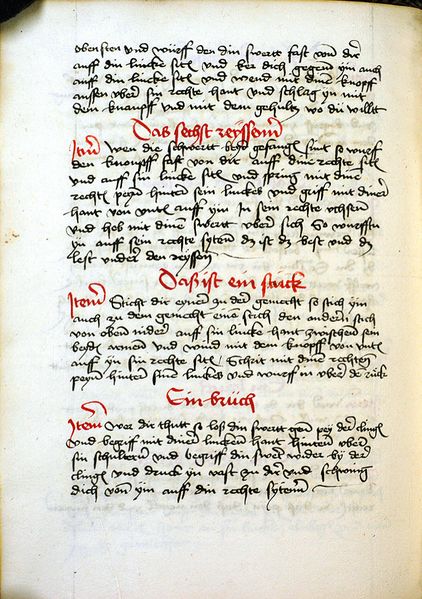 obensten und würff den din swertt fast von dir
auff din lincke sitñ und ker dich gegem ym auch
auff din lincke sitñ und wend mit dinē knopff
aussen über sin rechte hant und schlag yn mit
dem knaupff und mit dem gehültz wo dü willt
Das sechst reyssenn
Itm̄ wen die schwertt beyd gefangen sint so würf
den knoupff fast von dir auff dine rechte sitñ
und auff sin lincke sitñ und spring mit dinē
rechtñ peyn hinten sein linckes und griff mit diner
hant von unttñ auff ym In sein rechte uchsen
und heb mit dinē swertt über sich So würfstu
yn auff sein rechte syten dz ist dz best und dz
lest under den reyssen
Das ist ein stück
Item Sticht dir eyner zu der gemecht so stich ym
auch zu dem gemecht einē stich den andern stich
von oben nider auff sin lincke hant zwischen sein
bayd armen und wind mit dem knopff von untñ
auff yn sin rechte sitñ / Schrit mit dinē rechten
peyn hinter sine linckes und würff in über dē rück
Ein brüch
Item Wer dir thutt so loß din swertt gen pey der clingñ
und begriff mit diner linckenn hant hinten über
sin schulternn und begriff din swertt wider by der
clingñ und druck yn vast zu dir und schwing
dich vonn ym auff din rechte sytenn